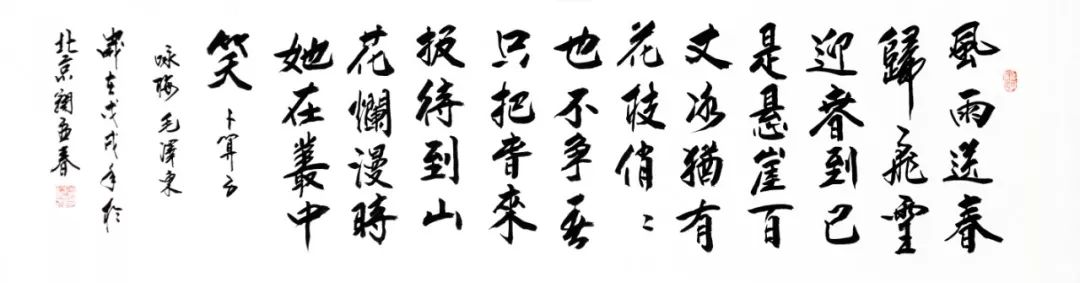 風雨送春
歸飛雪
迎春到已
是懸崖百
丈冰猶有
花枝俏〻
也不争春
只把春來
报待到山
花爛漫時
她在叢中
笑 卜算子
咏梅毛澤東
歲在戊戌年於
北京 孟春